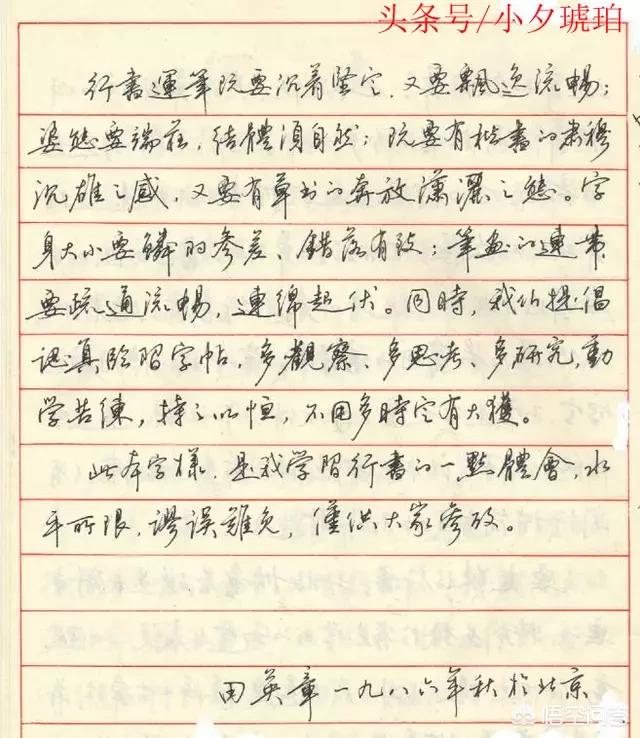 头条号/小夕琥珀
行書運筆既要沉着堅定，又要飄逸流暢；
姿態要端莊，結體須自然；既要有楷書的肅穆
沉雄之感，又要有草书的奔放瀟灑之態。字
身大小要鱗羽參差、錯落有致；筆画的連带
要疏通流暢，連綿起伏。同時，我们提倡
認真临習字帖，多觀察、多思考、多研究，勤
學苦練，持之以恒，不用多時定有大獲。
此本字樣，是我学習行書的一點體會，水
平所限，謬误難免，僅供大家參改。
田英章一九八六年秋於北京
悟空问答